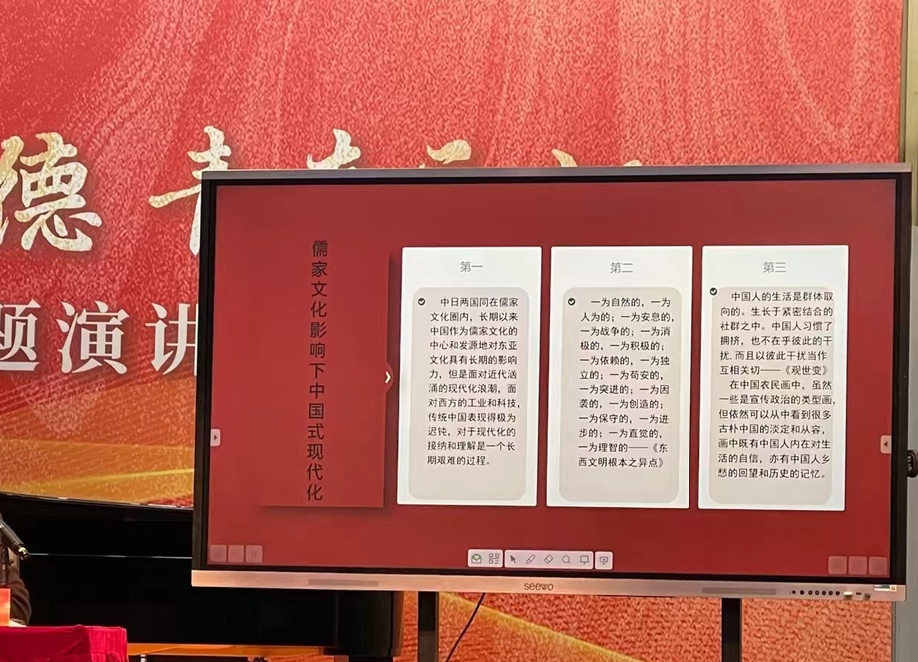 德 青
题演讲
儒家文化影响下中国式现代化
第一
中日两国同在儒家
文化圈内，长期以来
中国作为儒家文化的
中心和发源地对东亚
文化具有长期的影响
力，但是面对近代汹
涌的现代化浪潮，面
对西方的工业和科技，
传统中国表现得极为
迟钝，对于现代化的
接纳和理解是一个长
期艰难的过程。
第二
一为自然的，一为
人为的；一为安息的，
一为战争的；一为消
极的，一为积极的；
一为依赖的，一为独
立的；一为苟安的，
一为突进的；一为因
袭的，一为创造的；
一为保守的，一为进
步的；一为直觉的，
一为理智的——《东
西文明根本之异点》
第三
中国人的生活是群体取
向的。生长于紧密结合的
社群之中。中国人习惯了
拥挤，也不在乎彼此的干
扰，而且以彼此干扰当作
互相关切——《观世变》
在中国农民画中，虽然
一些是宣传政治的类型画，
但依然可以从中看到很多
古朴中国的淡定和从容，
画中既有中国人内在对生
活的自信，亦有中国人乡
愁的回望和历史的记忆。
seewo